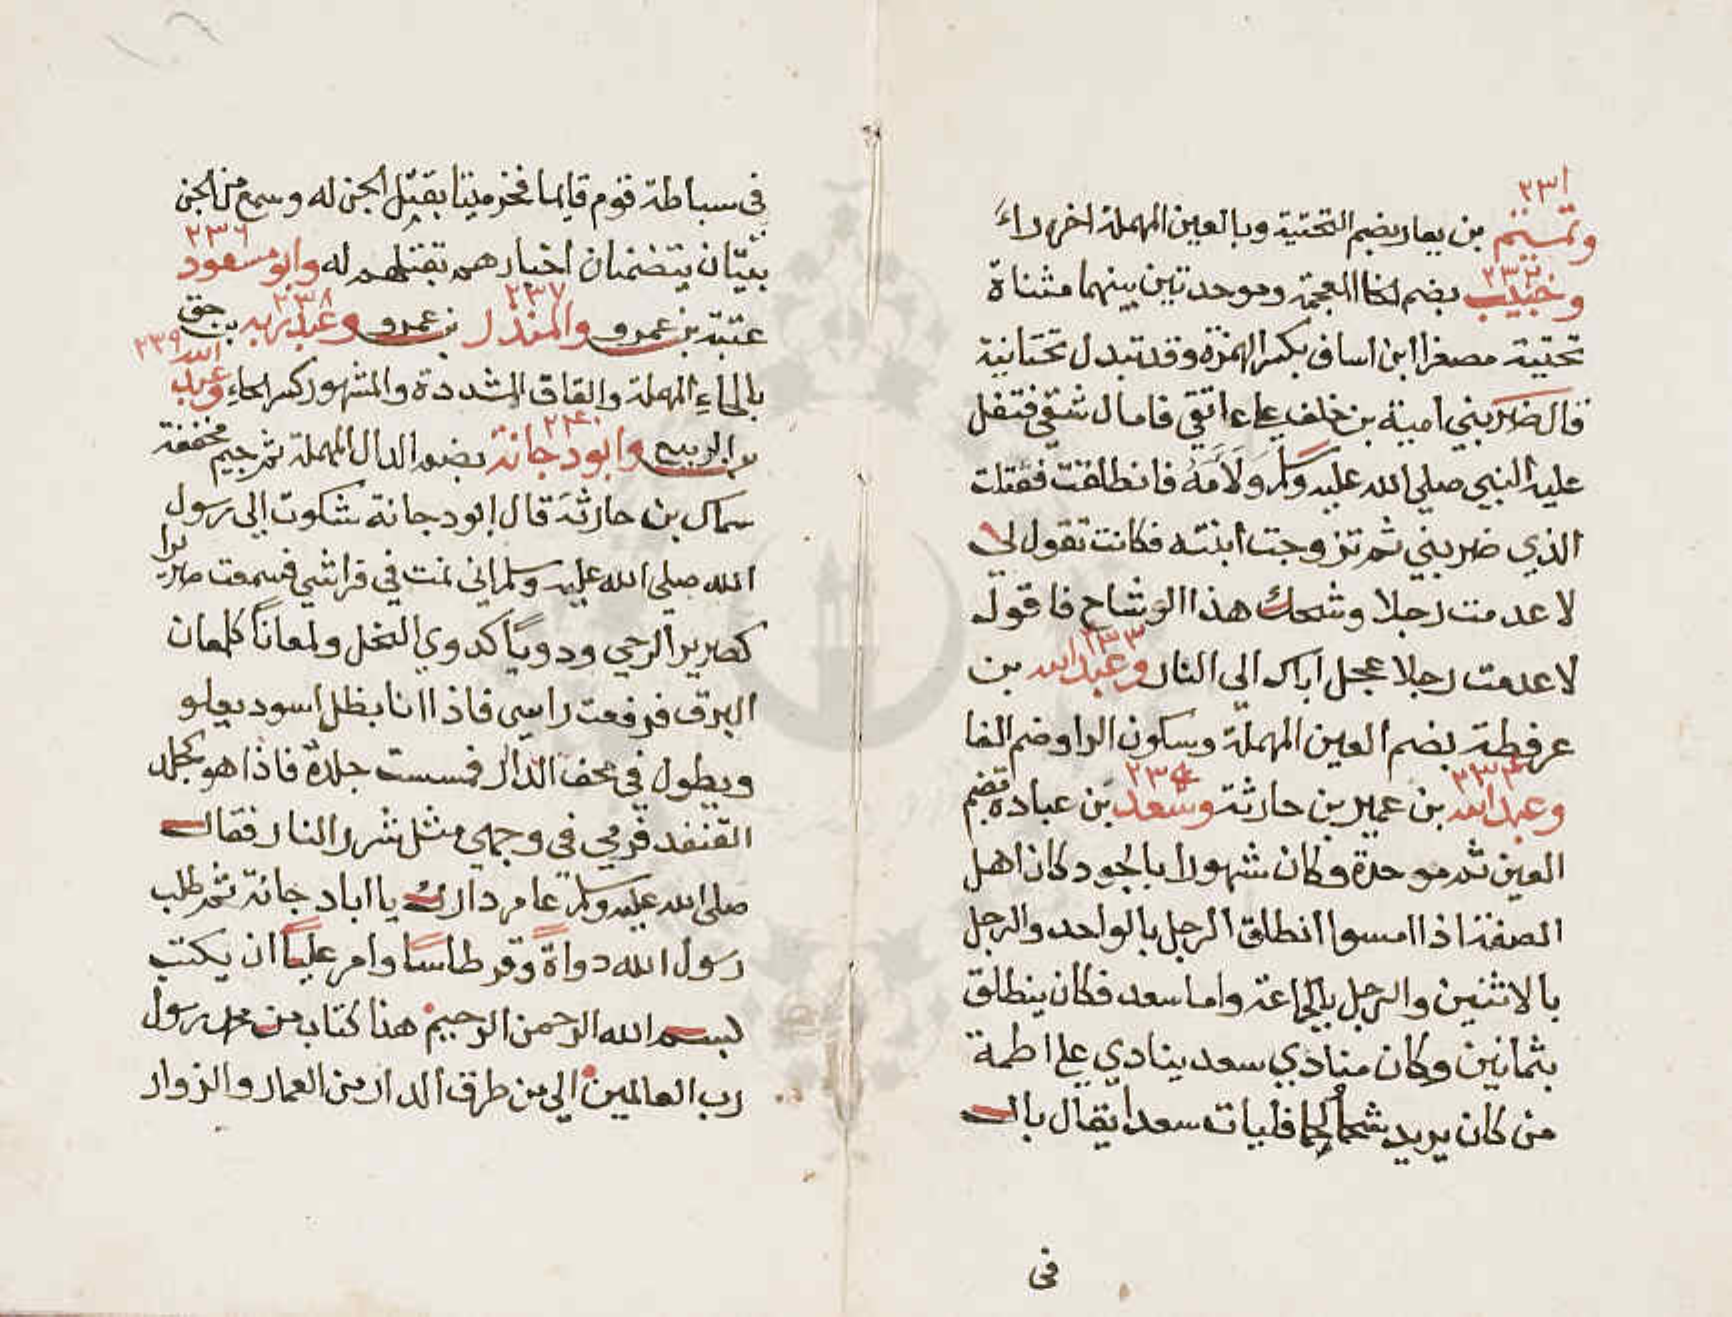 ٢٣١
وتميم بن يعار بضم التحتية وبالعين المهملة اخره راءً
٢٣٢
وخبيب بضم الخا المعجمة وموحدتين بينهما مثناة
تحتية مصغرا ابن اساف بكسر الهمزة وقد تبدل تحتانية
قال ضربني امية بن خلف على عاتقي فامال شقي فتفل
عليه النبي صلى الله عليه وسلم ولأمه فانطلقت فقتلت
الذي ضربني ثم تزوجت ابنته فكانت تقول لي
لا عدمت رجلا وشحك هذا الوشاح فاقول
٢٣٣
لا عدمت رجلا عجل اباك الي النار وعبد الله بن
عرفطة بضم العين المهملة وسكون الرا وضم الفا
٢٣٤
وعبد الله بن عمير بن حارثة وسعد بن عبادة بضم
العين ثم موحدة وكان شهورا بالجود كان اهل
الصفة اذا امسوا انطلق الرجل بالواحد والرجل
بالاثنين والرجل بالجماعة واما سعد فكان ينطلق
بثمانين وكان منادي سعد ينادي على اطمة
من كان يريد شحما لحما فليات سعدا يقال بال
في
في سباطة قوم قايما فخر ميتا بقتل الجن له وسمع من الجن
٢٣٦
بيتان يتضمنان اخبارهم بقتلهم له وابو مسعود
٢٣٧ ٢٣٨
عتبة بن عمرو والمنذر بن عمرو وعبد ربه بن حق
٢٣٩
بالحاءِ المهملة والقاف المشددة والمشهور كسر الحاءِ وعبد الله
٢٤٠
بن الربيع وابو دجانة بضم الدال المهملة ثم جيم مخففة
سماك بن حارثة قال ابو دجانة شكوت الى رسول
الله صلى الله عليه وسلم اني نمت في فراشي فسمعت صريرا
كصرير الرحي ودويًا كدوي النحل ولمعانًا كلمعان
البرق فرفعت راسي فاذا انا بظل اسود يعلو
ويطول في صحن الدار فمسست جلدة فاذا هو كجلد
القنفد فرمي في وجهي مثل شرر النار فقال
صلى الله عليه وسلم عامر دارك يا ابا دجانة ثم طلب
رسول الله دواةً وقرطاسًا وامر عليًا ان يكتب
بسم الله الرحمن الرحيم هذا كتاب من محمد رسول
رب العالمين الى من طرق الدار من العمار والزوار